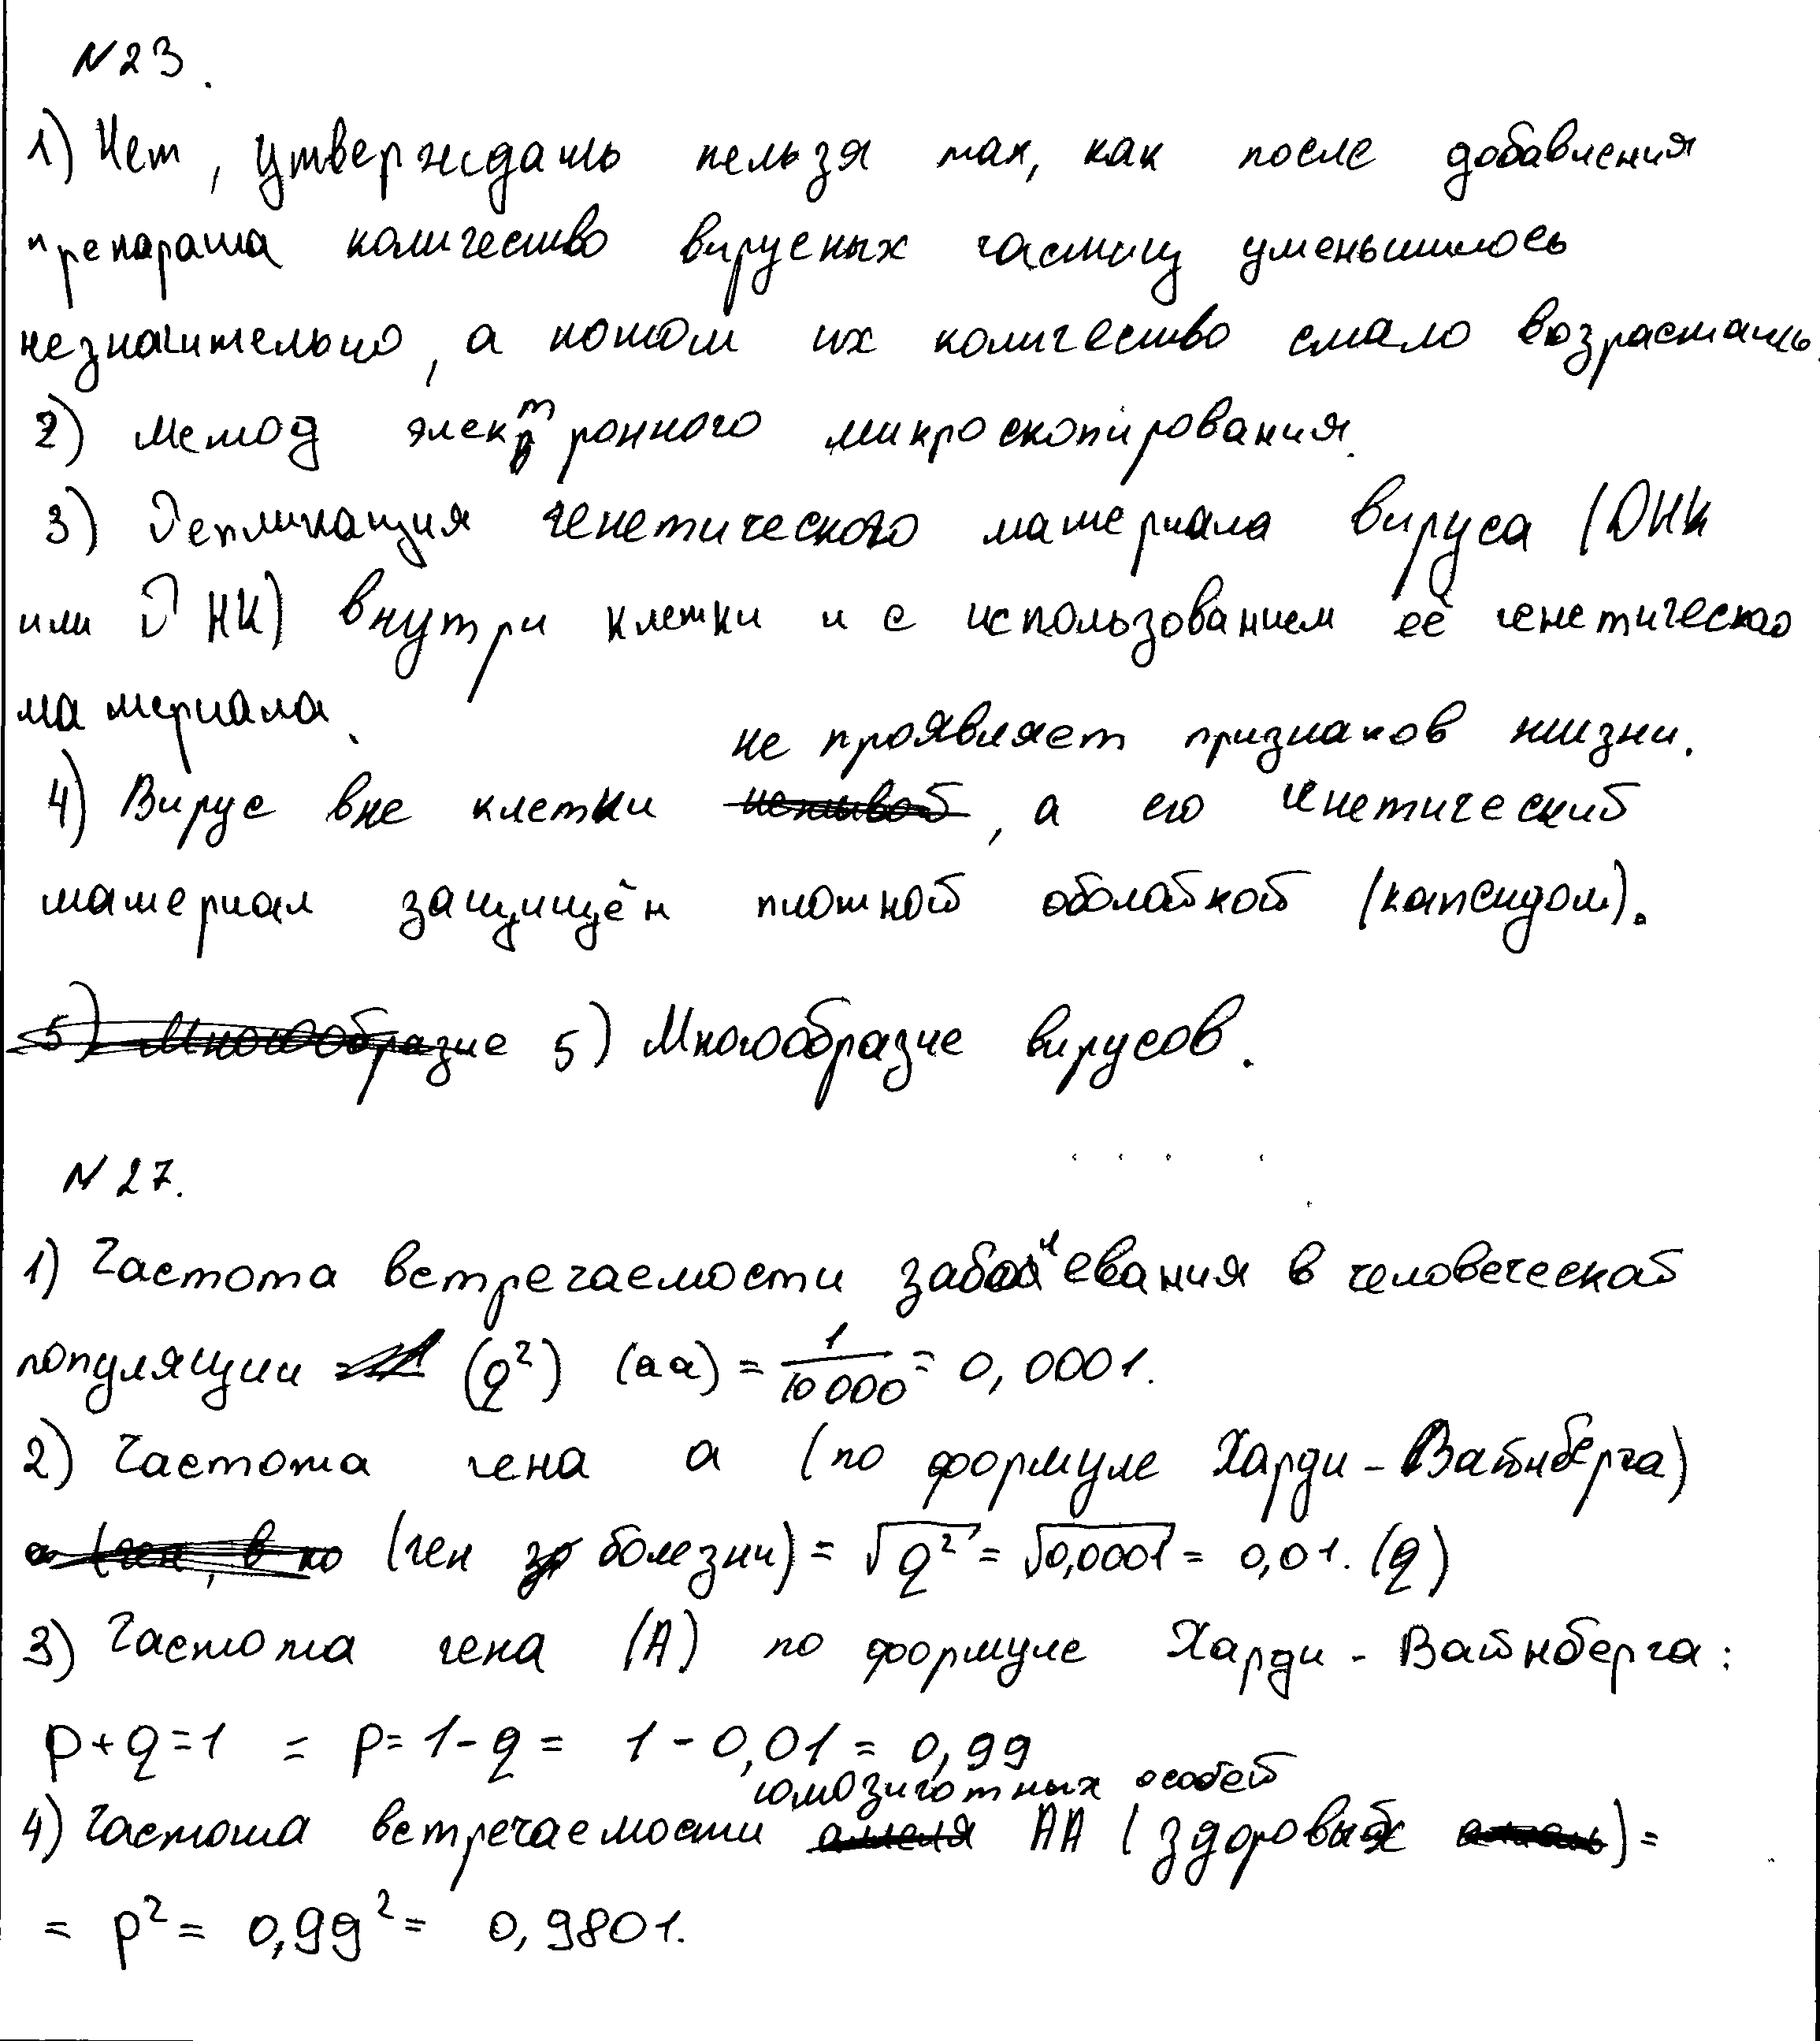 N23.
1) Нет, утверждать нельзя так, как после добавления
препарата количество вирусных частиц уменьшилось
незначительно, а потом их количество стало возрастать.
2) Метод электронного микроскопирования.
3) Репликация генетического материала вируса (ДНК
или РНК) внутри клетки и с использованием её генетического
материала.
не проявляет признаков жизни.
4) Вирус вне клетки неживой, а его генетический
материал защищён плотной оболойкой (капсидом).
5) Многообразие 5) Многообразие вирусов.
N27.
1) Частота встречаемости заболевания в человеческой
популяции (q²) (aa) = 1/10000 = 0,0001.
2) Частота гена a (по формуле Харди-Вайнберга)
(ген болезни) = √q² = √0,0001 = 0,01. (q)
3) Частота гена (A) по формуле Харди-Вайнберга:
p+q=1 = p=1-q= 1-0,01=0,99
гомозиготных особей
4) Частота встречаемости аллеля AA (здоровых) =
= p² = 0,99² = 0,9801.